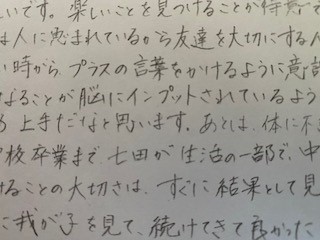 いです。楽しいことを見つけることが得意で
は人に恵まれているから友達を大切にする人
い時から、プラスの言葉をかけるように意識
なることが脳にインプットされているよう
め上手だなと思います。あとは、体に不
校卒業まで、七田が生活の一部で、中
けることの大切さは、すぐに結果として見
に我が子を見て、続けてきて良かった